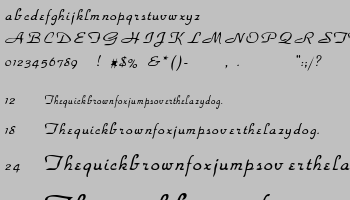 abcdefghijklmnopqrstuvwxyz
ABCDEFGHIJKLMNOPQRST
0123456789 ! #$% &*()- , . ":;/?
12 Thequickbrownfoxjumpsoverthelazydog.
18 Thequickbrownfoxjumpsoverthelazydog.
24 Thequickbrownfoxjumpsoverthela